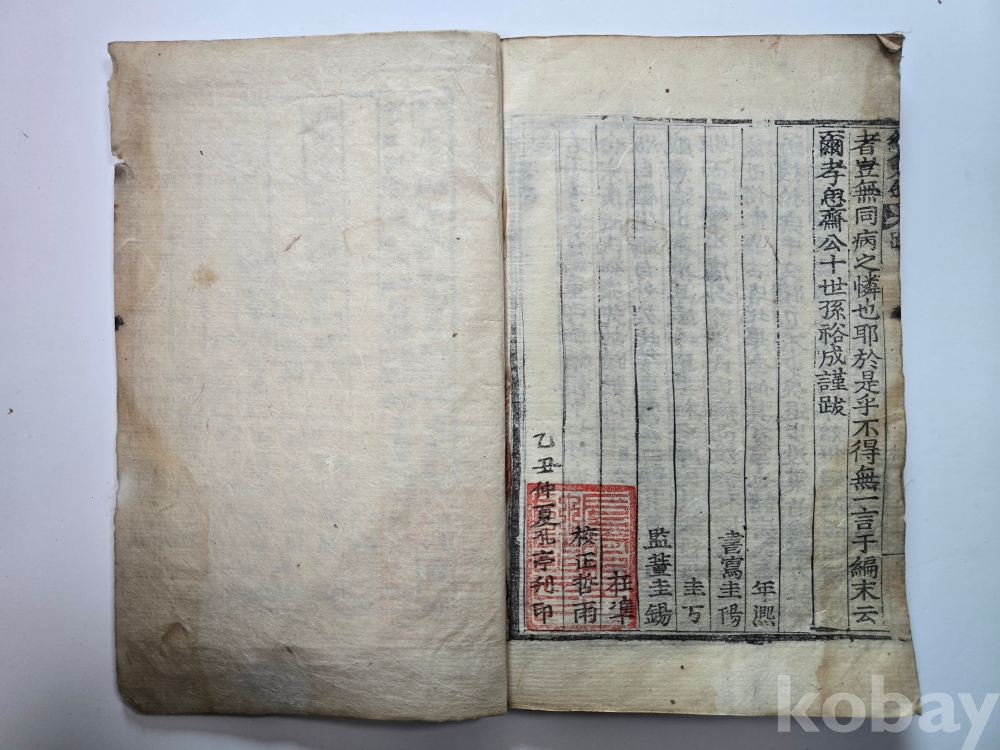 者豈無同病之憐也耶於是乎不得無一言于編末云
爾孝思齋公十世孫裕成謹跋
年凞
書寫圭陽
圭丂
監董圭錫
準
校正哲雨
乙丑仲夏亭刊印
kobay